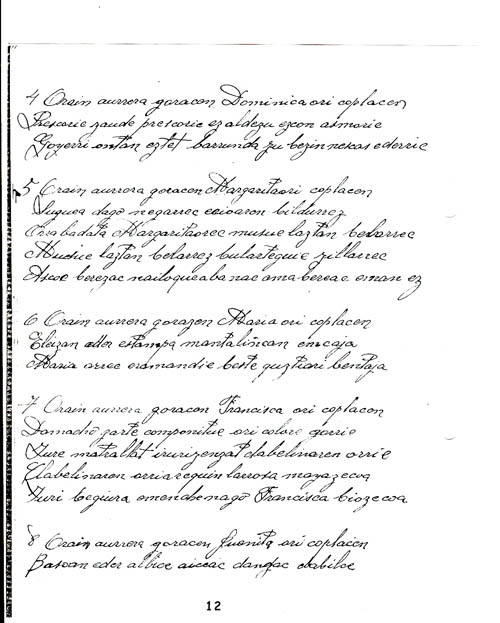 4 Orain aurrera goracon Dominica ori coplacen
Prescorie zaude prescorie ez aldezu ezcon asmorie
Goyerri ontan eztet barrunda zu bezin nescas ederric
5 Orain aurrera goracon Margarita ori coplacen
Suguea dago negarrec bildurrez
Margaritaorec musue laztan belarrec
Musue laztan belarrez bulartegui zillarrec
berezac nai ama bereac eman ez
6 Orain aurrera gorazen Maria ori coplacen
Eleizan eder estampa mantaliñean
Maria orrec eramandie beste guztiori bentaja
7 Orain aurrera goracon Francisca ori coplacen
Damacho garte componitue ori colore gorrie
Zure matrallat irurizengat clabelinaren orrie
Clabelinaren orriarequin larrosa mayazecoa
Zuri beguira emenche nago Francisca biozecoa
8 Orain aurrera goracon Juanita ori coplacen
Basoan eder albice aiceac danzac dabilce
12